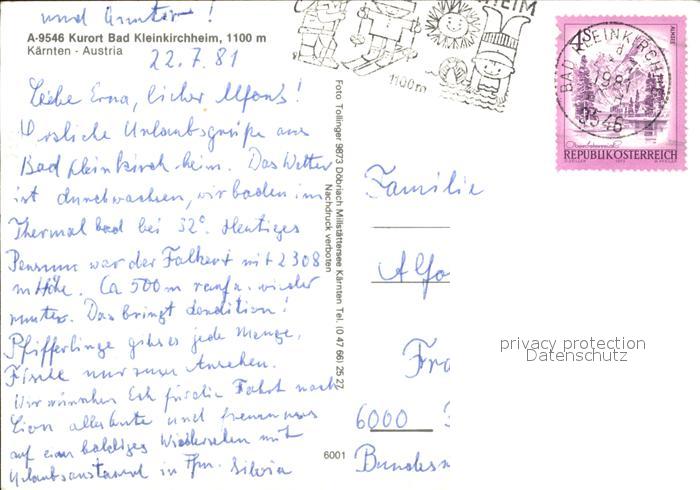 und Gunter!
A-9546 Kurort Bad Kleinkirchheim, 1100 m
Kärnten - Austria
22.7.81
Liebe Erna, lieber Alfons!
Herzliche Urlaubsgrüße aus
Bad Kleinkirchheim. Das Wetter
ist durchwachsen, wir baden im
Thermalbad bei 32°. Heutiges
Pensum war der Falkert mit 2308
m Höhe. Ca 500 m rauf u. wieder
runter. Das bringt Kondition!
Pfifferlinge gibt es jede Menge,
Fische nur zum Ansehen.
Wir wünschen Euch für die Fahrt nach
alles Gute und freuen uns
auf ein baldiges Wiedersehen mit
Urlaubsaustausch in Silvia
Foto Tollinger 9873 Döbriach Millstättersee Kärnten Tel. (0 47 66) 25 27
Nachdruck verboten
6001
HEIM
1100m
BAD KLEINKIRCHH
1981
9546
4 S
ALMSEE
Oberösterreich
REPUBLIK ÖSTERREICH
Familie
Alfo
Fra
6000
Bundesr
privacy protection
Datenschutz